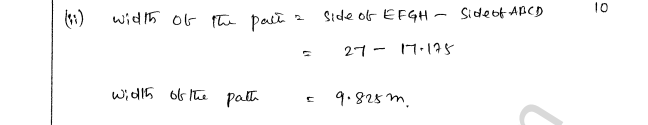 (ii) width of the path = side of EFGH - side of ABCD 10
= 27 - 17.175
width of the path = 9.825 m.